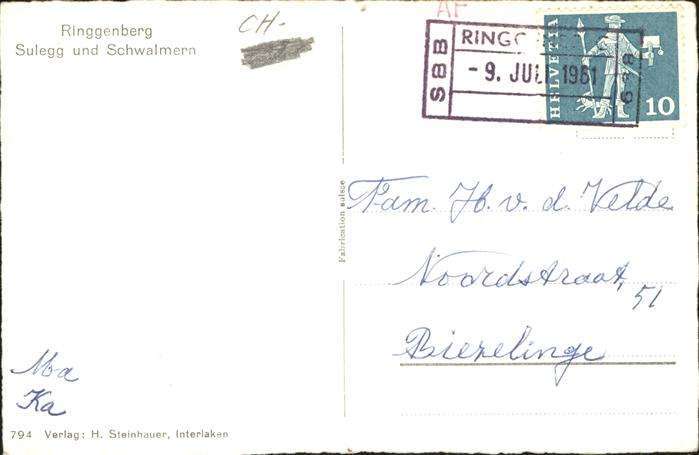 Ringgenberg
Sulegg und Schwalmern
CH-
AF
SBB
RINGG
- 9. JULI 1961
SBB
HELVETIA
10
Fabrication suisse
Fam. H. v. d. Velde
Noordstraat,
51
Biezelinge
Ma
Ka
794 Verlag: H. Steinhauer, Interlaken